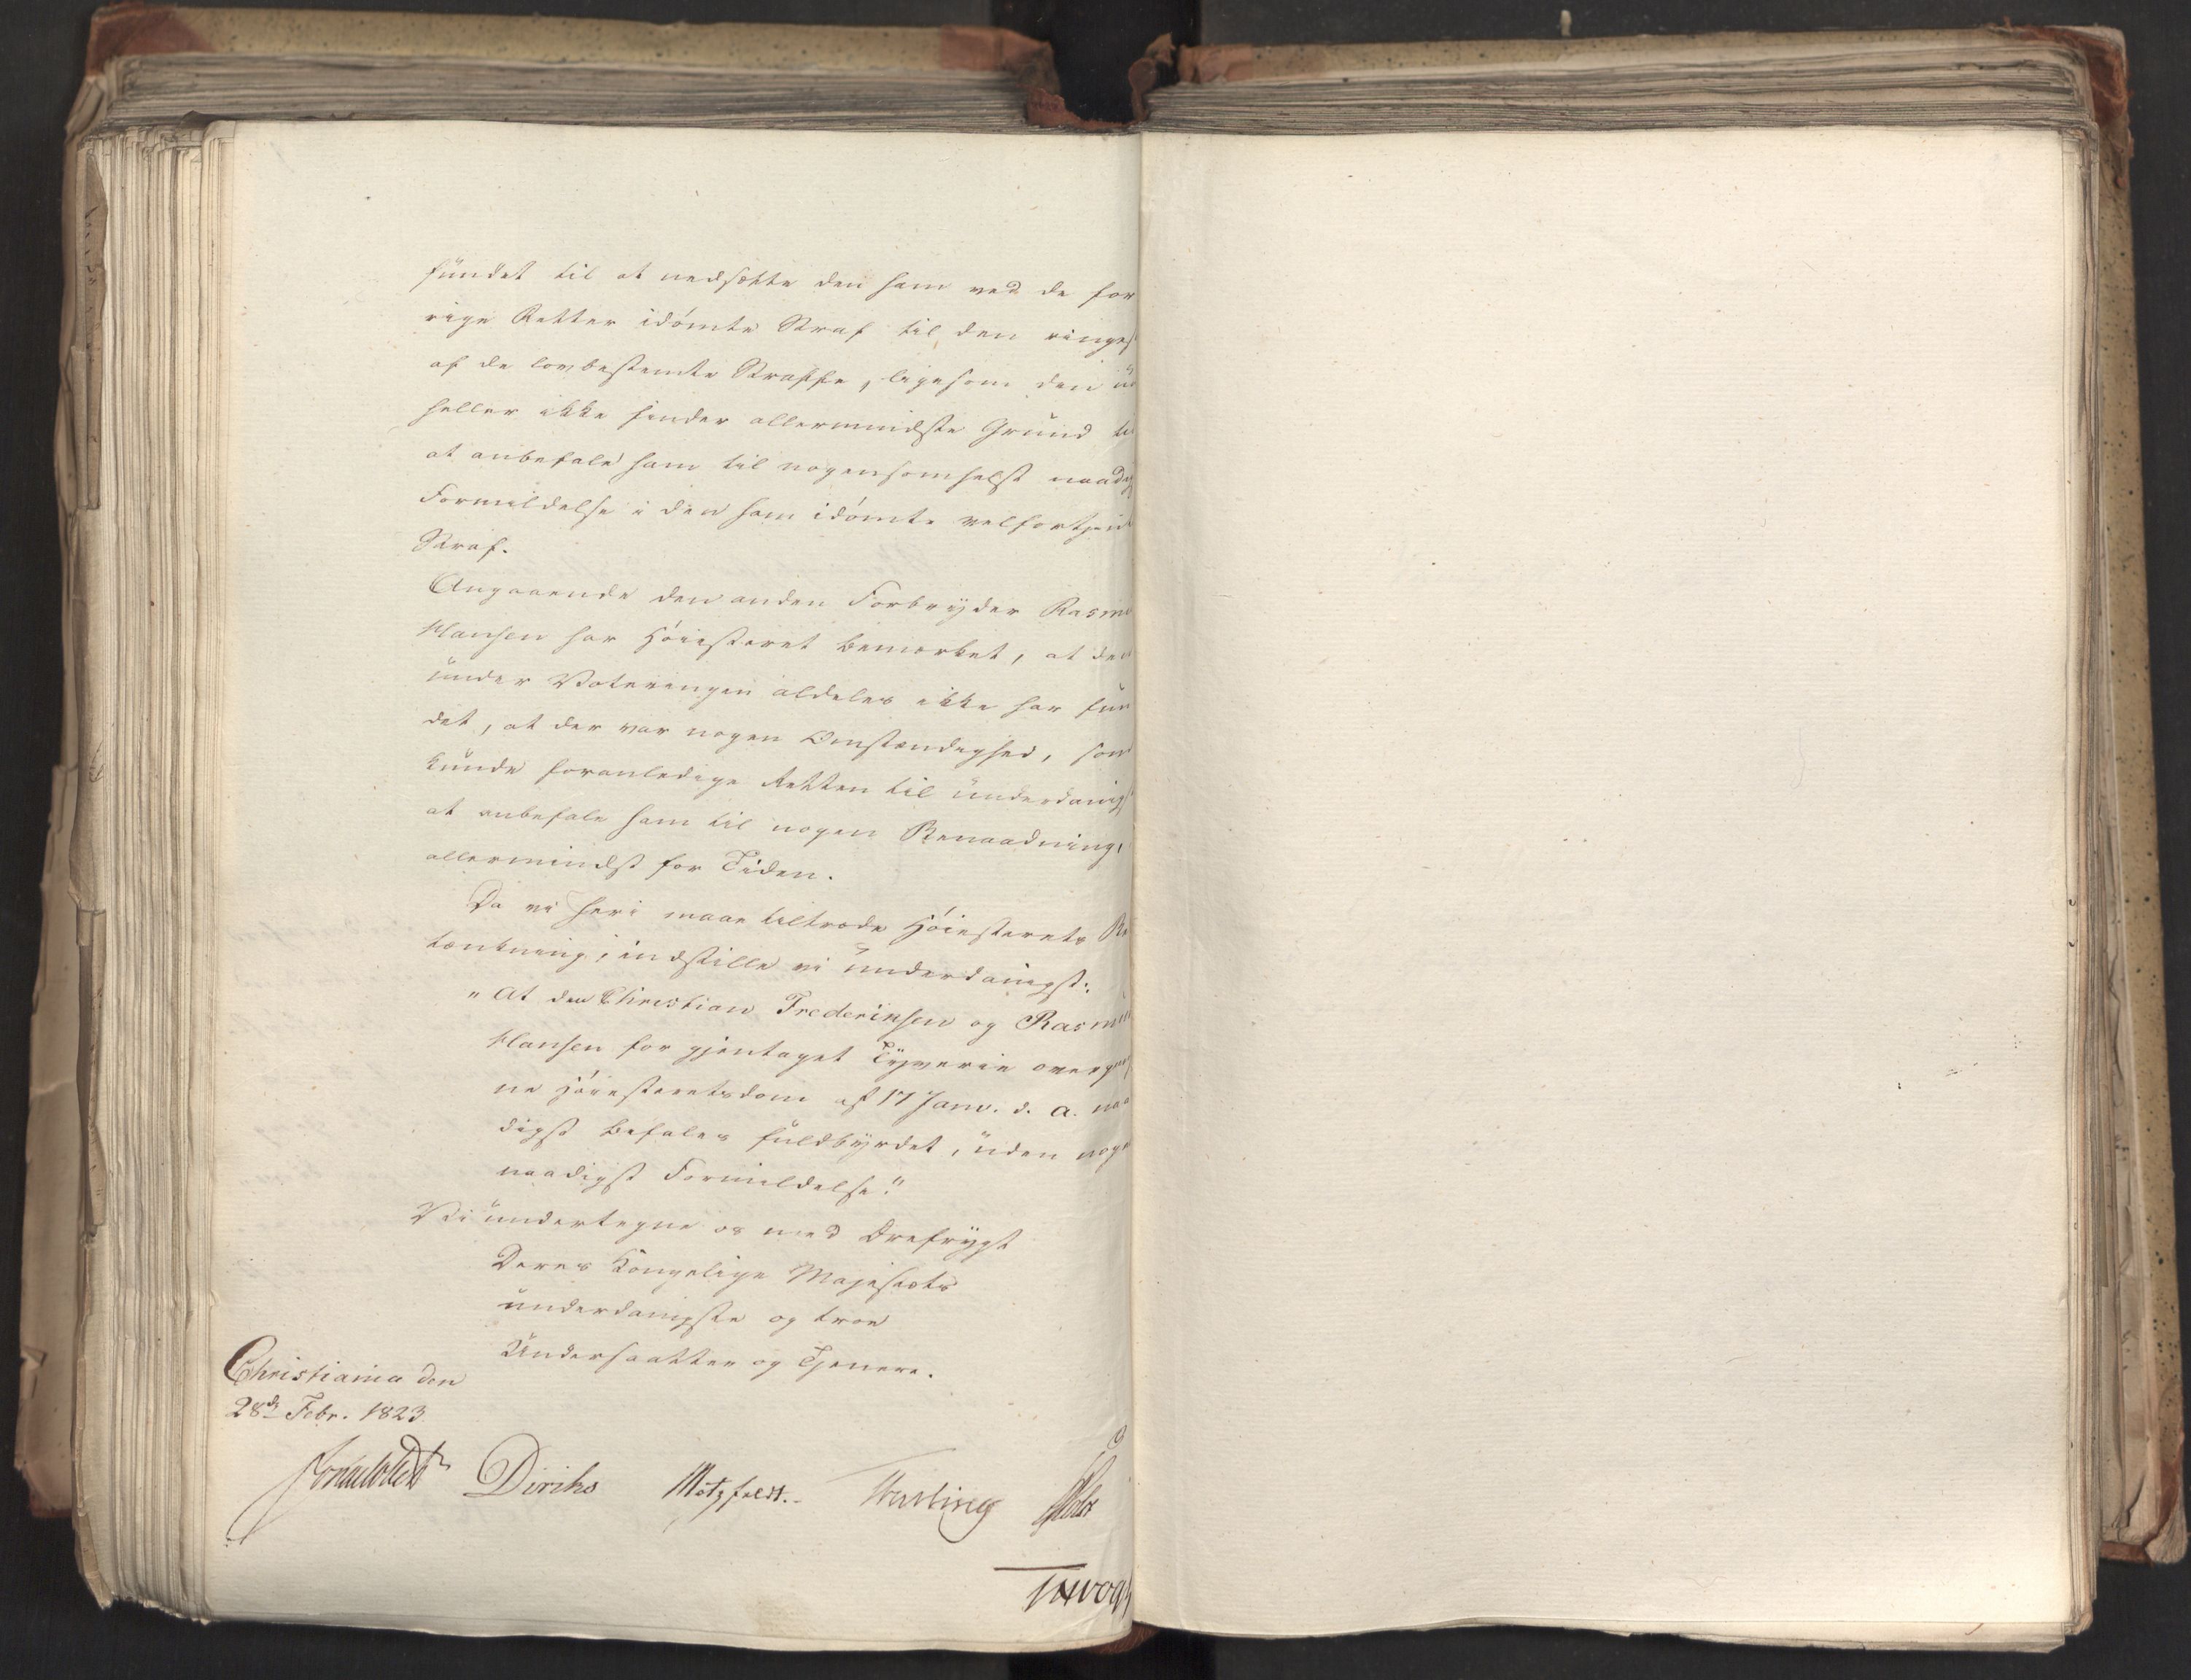 fundet til at nedsætte den ham ved de for
rige Retter idömte Straf til den ringes
af de lovbestemte Straffe, ligesom den
heller ikke finder allermindste Grund til
at anbefale ham til nogensomhelst naadig
Formildelse i den ham idömte velfortjent
Straf.
Angaaende den anden Forbryder Rasmu
Hansen har Höiesteret bemærket, at den
under Voteringen aldeles ikke har fun
det, at der var nogen Omstændighed, som
kunde foranledige Retten til underdanigst
at anbefale ham til nogen Benaadning,
allermindst for Tiden.
Da vi heri maae tiltræde Höiesterets Be
tænkning, indstille vi underdanigst:
"At den Christian Frederiksen og Rasmu
Hansen for gjentaget Tyverie overgang
ne Höiesteretsdom af 17 Janv. d. A. naa
digst befales fuldbyrdet, uden noge
naadigst Formildelse."
Vi undertegne os med Ærefrygt
Deres Kongelige Majestæts
underdanigste og troe
Undersaatter og Tjenere.
Christiania den
28de Febr. 1823
Diriks Motzfeldt.